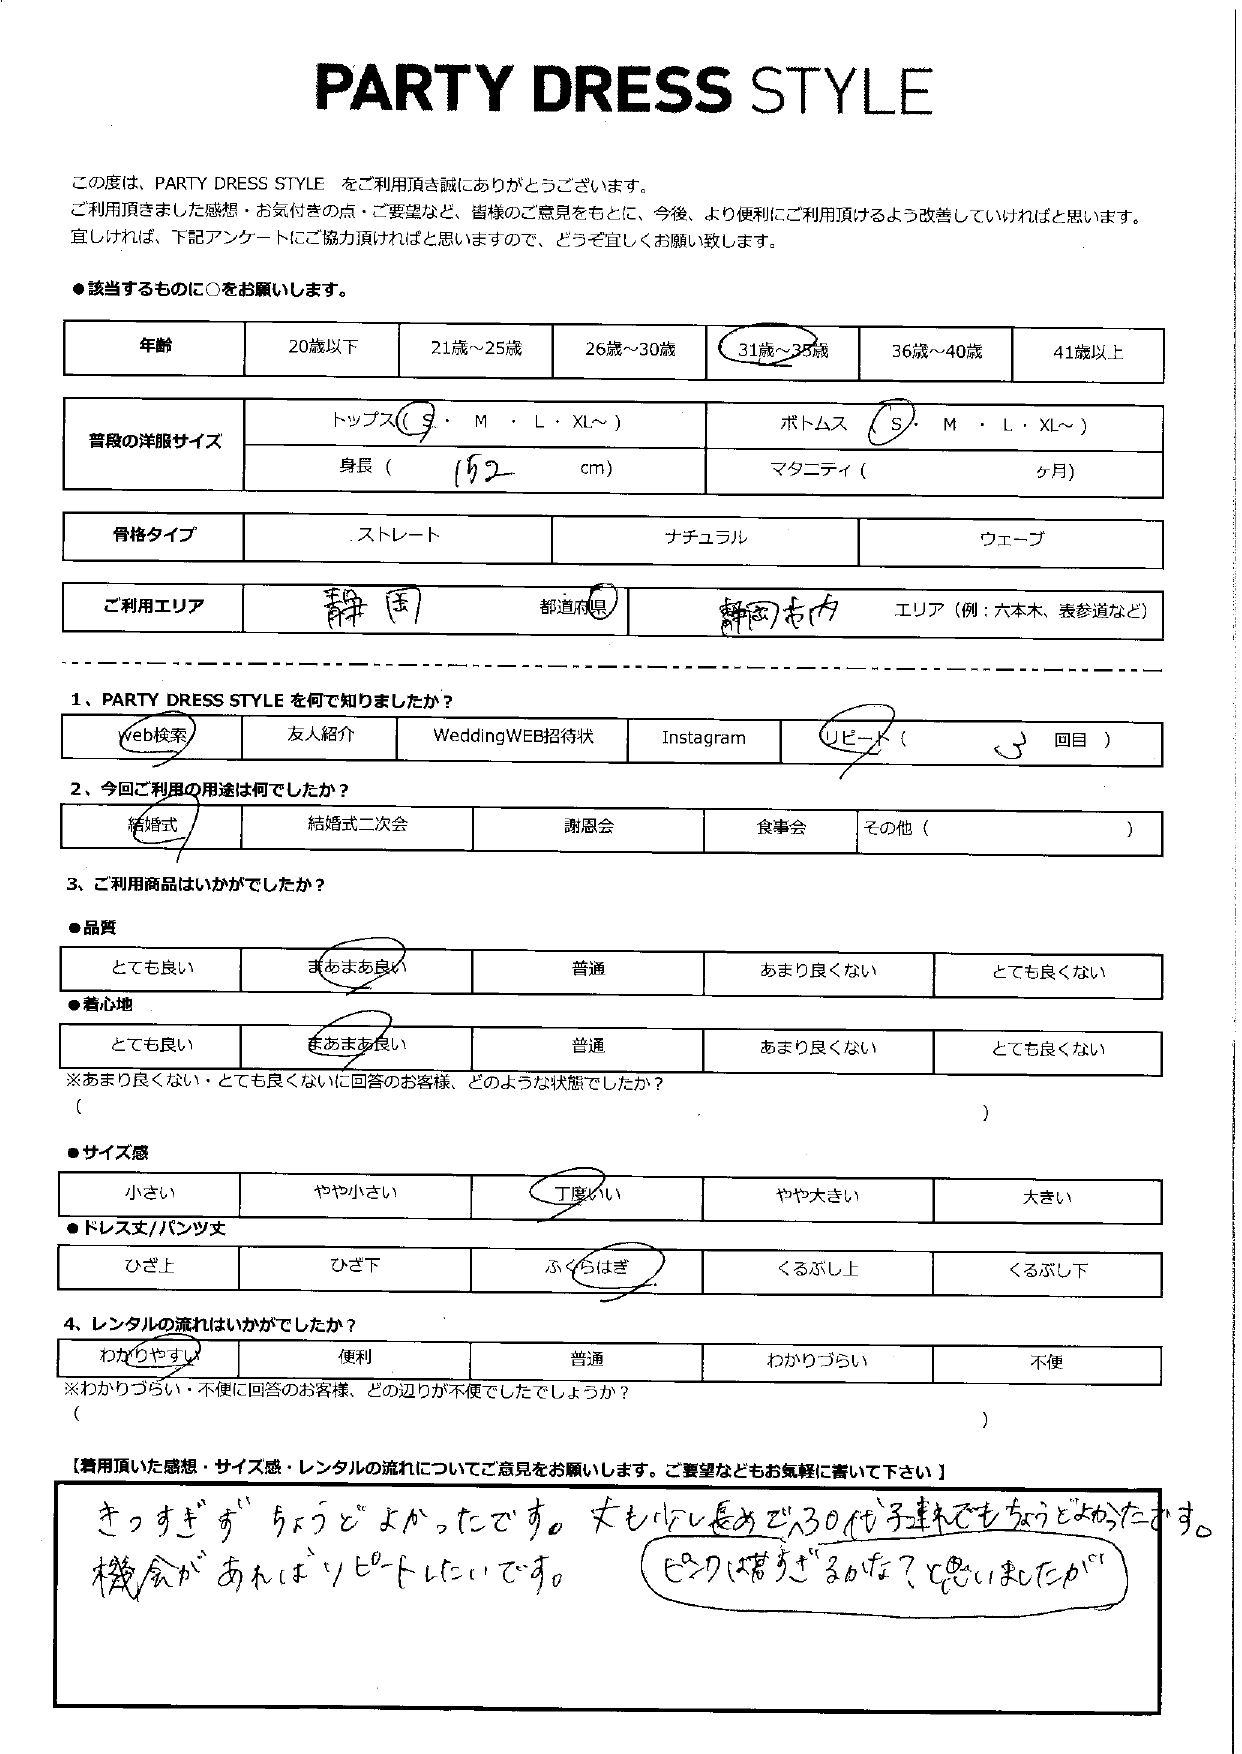 PARTY DRESS STYLE
この度は、PARTY DRESS STYLE をご利用頂き誠にありがとうございます。
ご利用頂きました感想・お気付きの点・ご要望など、皆様のご意見をもとに、今後、より便利にご利用頂けるよう改善していければと思います。
宜しければ、下記アンケートにご協力頂ければと思いますので、どうぞ宜しくお願い致します。
●該当するものに○をお願いします。
年齢 20歳以下 21歳～25歳 26歳～30歳 31歳～35歳 36歳～40歳 41歳以上
普段の洋服サイズ
トップス( S ・ M ・ L ・ XL～ ) ボトムス ( S ・ M ・ L ・ XL～ )
身長 ( 152 cm) マタニティ ( ヶ月)
骨格タイプ ストレート ナチュラル ウェーブ
ご利用エリア 静岡 都道府県 静岡市内 エリア（例：六本木、表参道など）
1、PARTY DRESS STYLE を何で知りましたか？
Web検索 友人紹介 WeddingWEB招待状 Instagram リピート ( 3 回目 )
2、今回ご利用の用途は何でしたか？
結婚式 結婚式二次会 謝恩会 食事会 その他 ( )
3、ご利用商品はいかがでしたか？
●品質
とても良い まあまあ良い 普通 あまり良くない とても良くない
●着心地
とても良い まあまあ良い 普通 あまり良くない とても良くない
※あまり良くない・とても良くないに回答のお客様、どのような状態でしたか？
( )
●サイズ感
小さい やや小さい 丁度いい やや大きい 大きい
●ドレス丈/パンツ丈
ひざ上 ひざ下 ふくらはぎ くるぶし上 くるぶし下
4、レンタルの流れはいかがでしたか？
わかりやすい 便利 普通 わかりづらい 不便
※わかりづらい・不便に回答のお客様、どの辺りが不便でしたでしょうか？
( )
【着用頂いた感想・サイズ感・レンタルの流れについてご意見をお願いします。ご要望などもお気軽に書いて下さい 】
きつすぎず ちょうどよかったです。丈も少し長めで、30代子連れでもちょうどよかったです。
機会があればリピートしたいです。 ピンクは若すぎるかな？と思いましたが